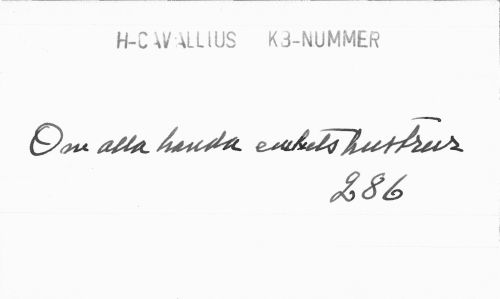 H-CAVALLIUS KB-NUMMER
Om alla handa enkets hustrur
286